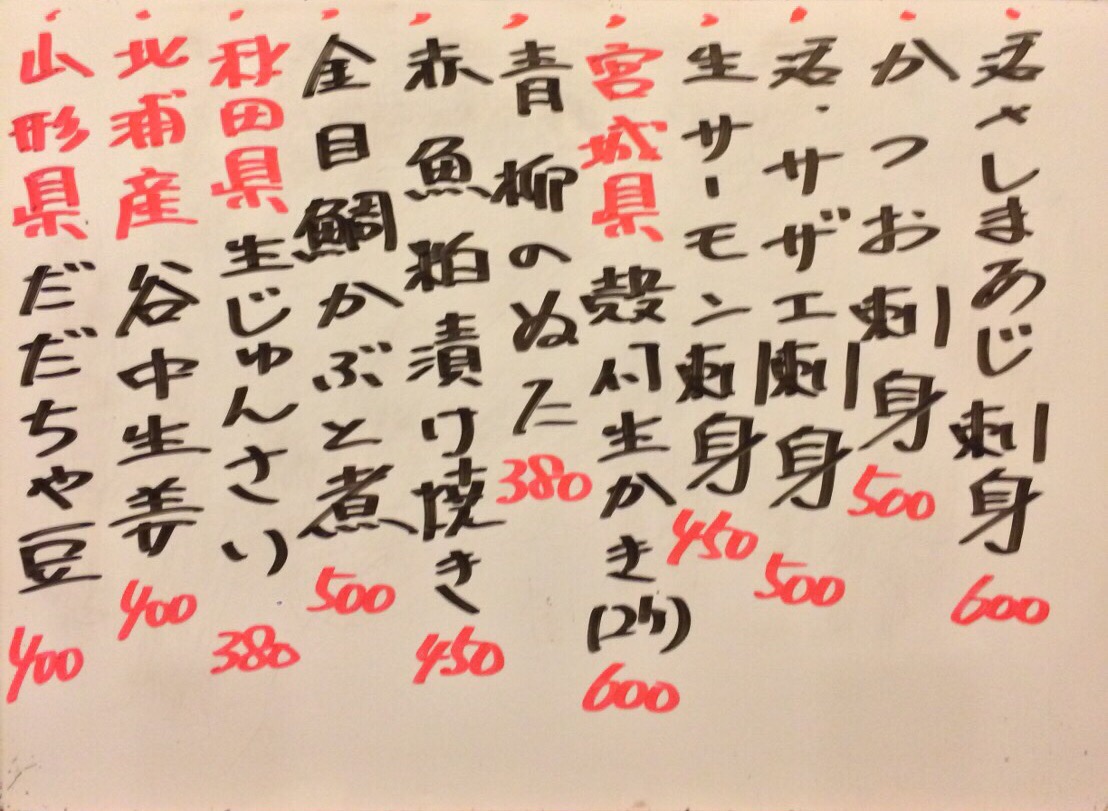 ・活〆しまあじ刺身 600
・かつお刺身 500
・活・サザエ刺身 500
・生サーモン刺身 450
・宮城県 殻付生かき(2ケ) 600
・青柳のぬた 380
・赤魚粕漬け焼き 450
・金目鯛かぶと煮 500
・秋田県 生じゅんさい 380
・北浦産 谷中生姜 400
・山形県 だだちゃ豆 400